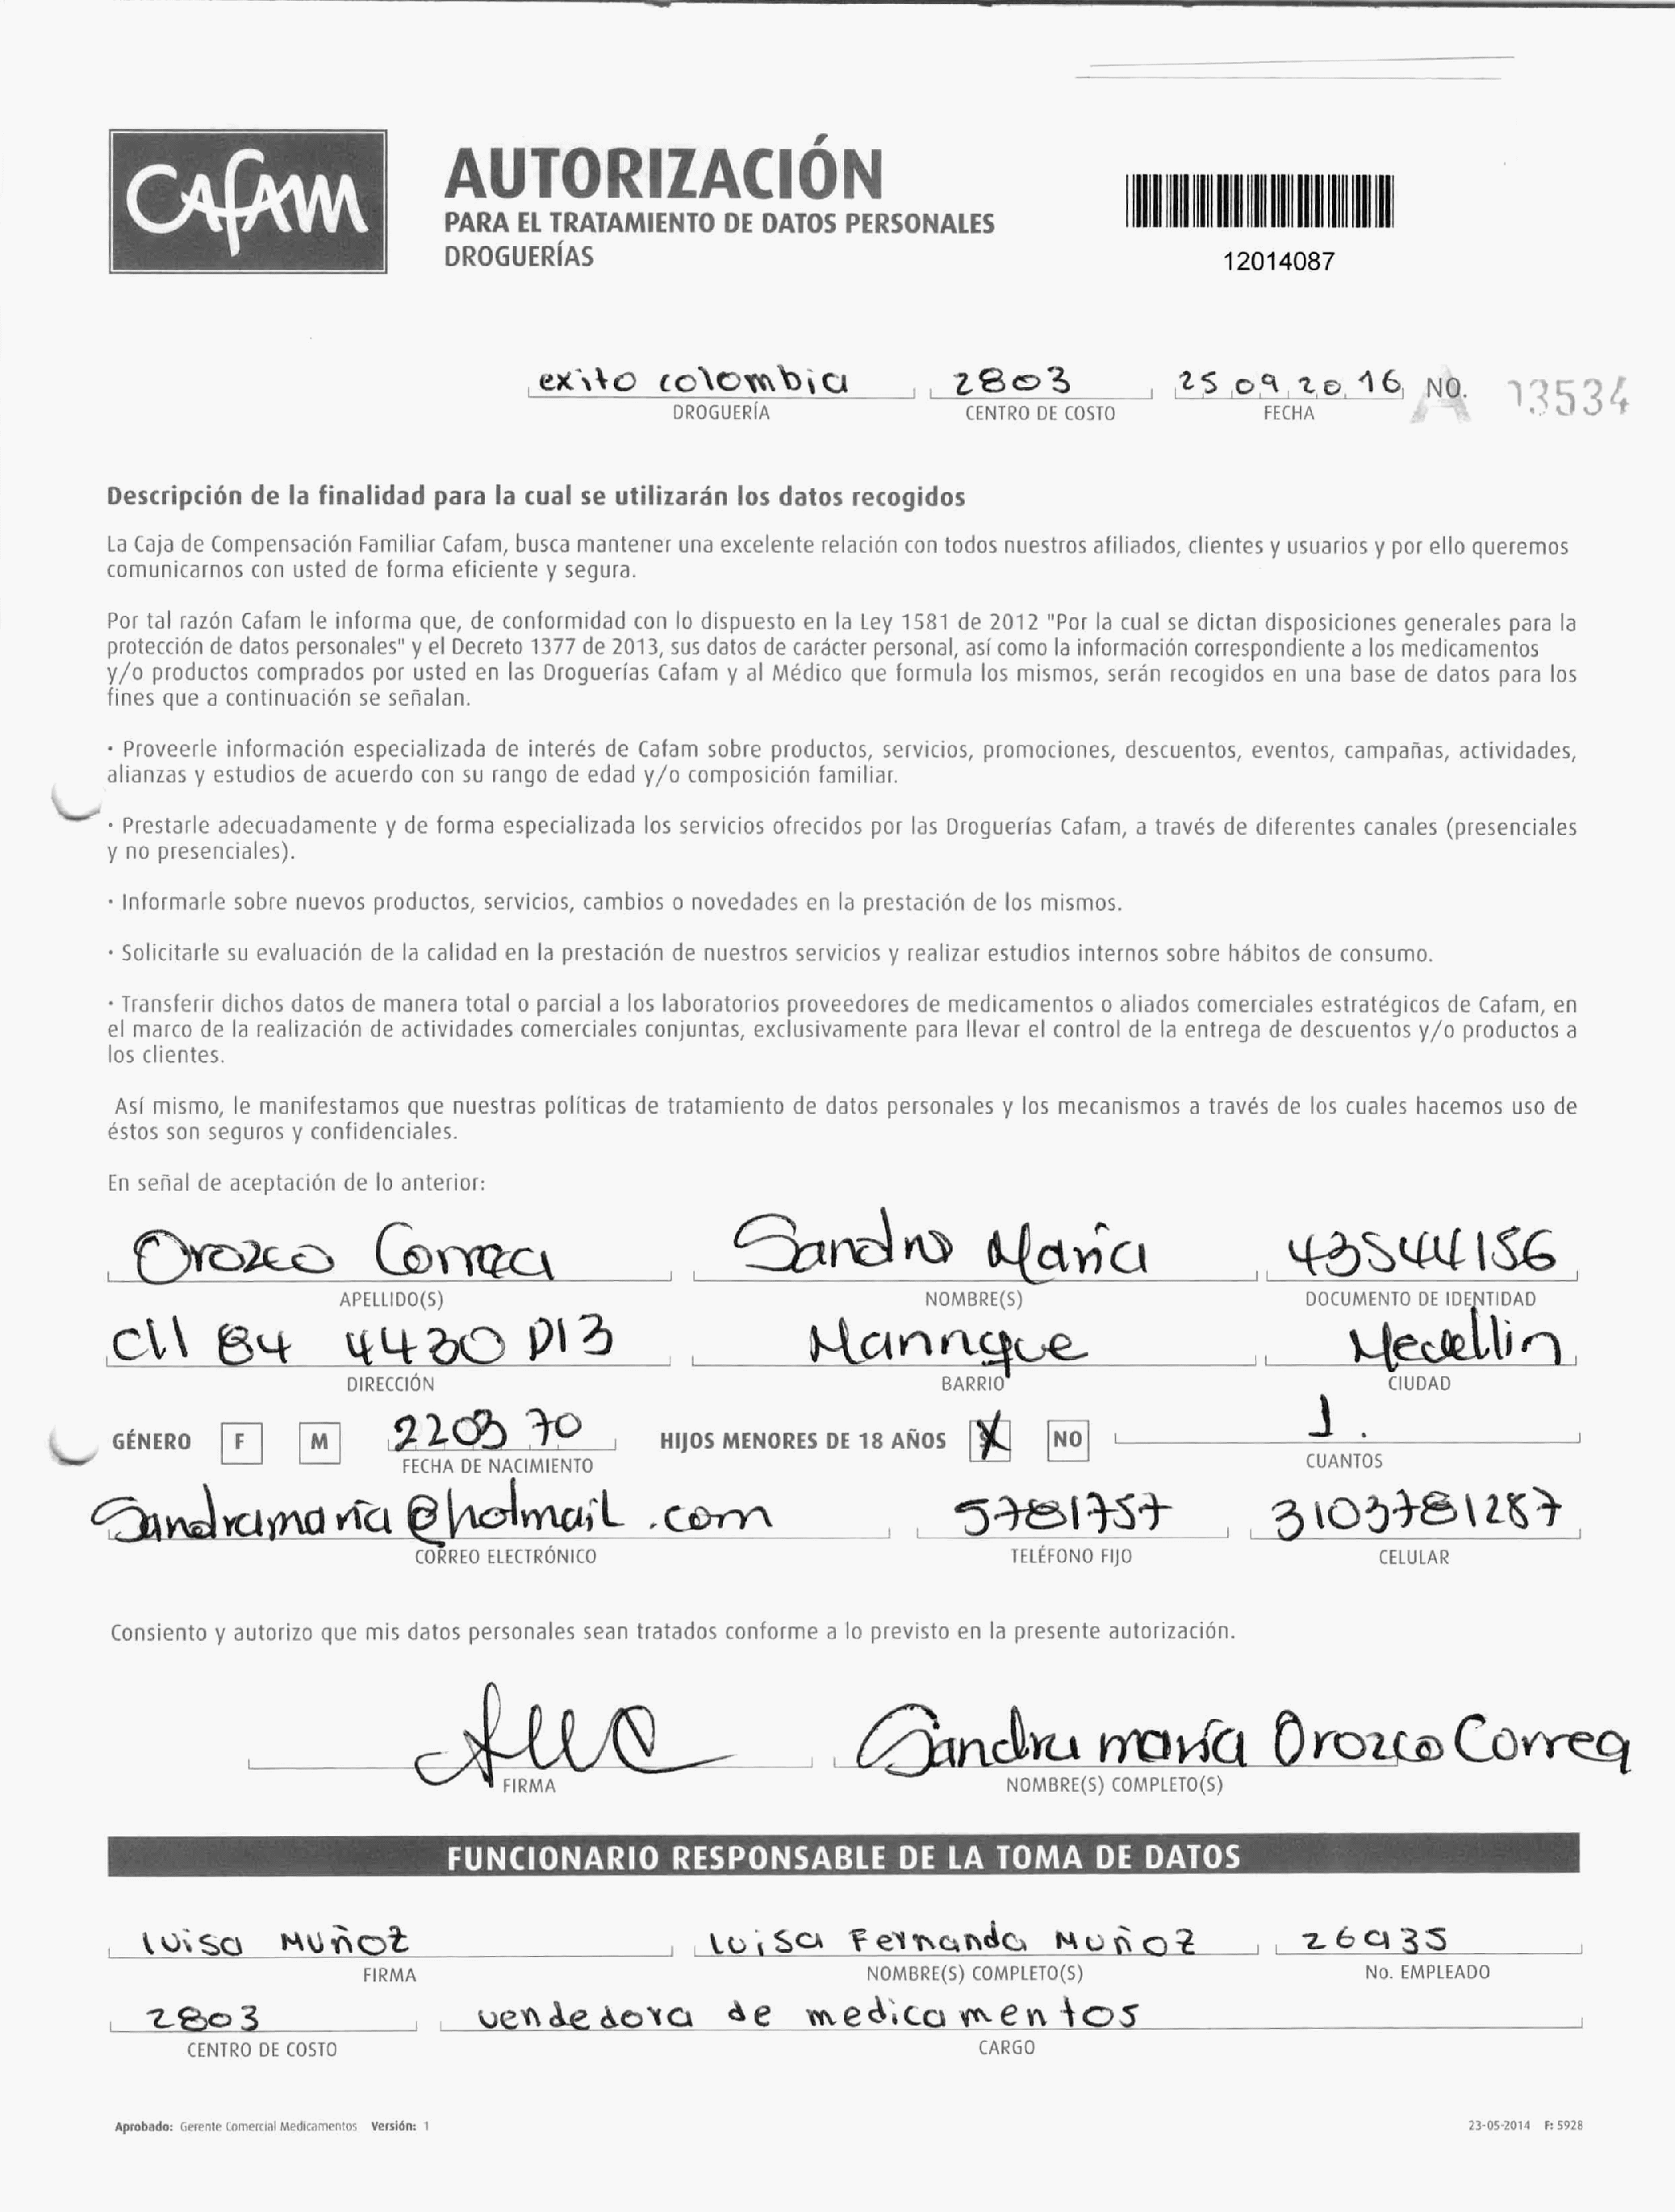 CAFAM
AUTORIZACIÓN
PARA EL TRATAMIENTO DE DATOS PERSONALES
DROGUERÍAS
12014087
exito colombia 2803 25 09 20 16 NO. A 13534
DROGUERÍA CENTRO DE COSTO FECHA
Descripción de la finalidad para la cual se utilizarán los datos recogidos
La Caja de Compensación Familiar Cafam, busca mantener una excelente relación con todos nuestros afiliados, clientes y usuarios y por ello queremos
comunicarnos con usted de forma eficiente y segura.
Por tal razón Cafam le informa que, de conformidad con lo dispuesto en la Ley 1581 de 2012 "Por la cual se dictan disposiciones generales para la
protección de datos personales" y el Decreto 1377 de 2013, sus datos de carácter personal, así como la información correspondiente a los medicamentos
y/o productos comprados por usted en las Droguerías Cafam y al Médico que formula los mismos, serán recogidos en una base de datos para los
fines que a continuación se señalan.
· Proveerle información especializada de interés de Cafam sobre productos, servicios, promociones, descuentos, eventos, campañas, actividades,
alianzas y estudios de acuerdo con su rango de edad y/o composición familiar.
· Prestarle adecuadamente y de forma especializada los servicios ofrecidos por las Droguerías Cafam, a través de diferentes canales (presenciales
y no presenciales).
· Informarle sobre nuevos productos, servicios, cambios o novedades en la prestación de los mismos.
· Solicitarle su evaluación de la calidad en la prestación de nuestros servicios y realizar estudios internos sobre hábitos de consumo.
· Transferir dichos datos de manera total o parcial a los laboratorios proveedores de medicamentos o aliados comerciales estratégicos de Cafam, en
el marco de la realización de actividades comerciales conjuntas, exclusivamente para llevar el control de la entrega de descuentos y/o productos a
los clientes.
Así mismo, le manifestamos que nuestras políticas de tratamiento de datos personales y los mecanismos a través de los cuales hacemos uso de
éstos son seguros y confidenciales.
En señal de aceptación de lo anterior:
Orozco Correa Sandra Maria 43544156
APELLIDO(S) NOMBRE(S) DOCUMENTO DE IDENTIDAD
Cll 84 4430 P13 Manrique Medellin
DIRECCIÓN BARRIO CIUDAD
GÉNERO F M 2203 70 HIJOS MENORES DE 18 AÑOS X NO 1.
FECHA DE NACIMIENTO CUANTOS
Sandramaria@hotmail.com 5781757 3103781287
CORREO ELECTRÓNICO TELÉFONO FIJO CELULAR
Consiento y autorizo que mis datos personales sean tratados conforme a lo previsto en la presente autorización.
Sandra maría Orozco Correa
FIRMA NOMBRE(S) COMPLETO(S)
FUNCIONARIO RESPONSABLE DE LA TOMA DE DATOS
luisa Muñoz luisa Fernanda Muñoz 26935
FIRMA NOMBRE(S) COMPLETO(S) No. EMPLEADO
2803 vendedora de medicamentos
CENTRO DE COSTO CARGO
Aprobado: Gerente Comercial Medicamentos Versión: 1 23-05-2014 F: 5928